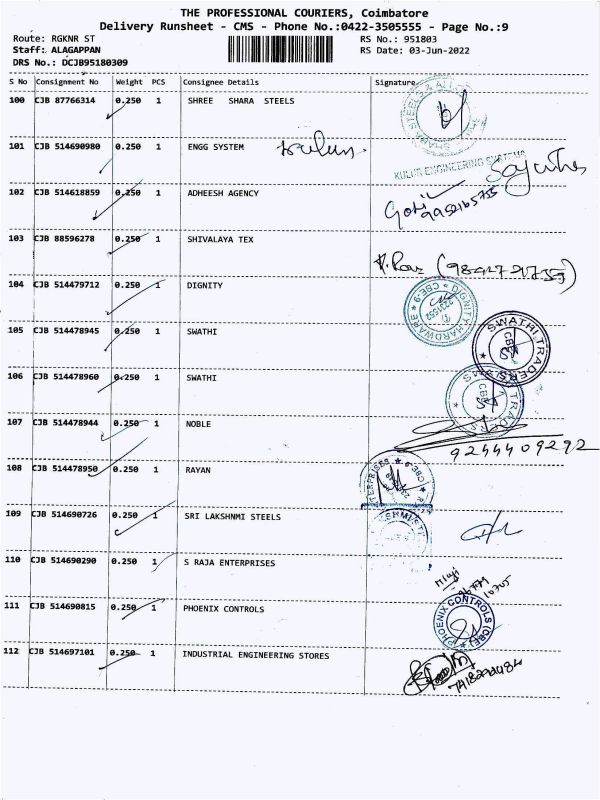 THE PROFESSIONAL COURIERS, Coimbatore
Delivery Runsheet - CMS - Phone No.:0422-3505555 - Page No.:9
Route: RGKNR ST RS No.: 951803
Staff: ALAGAPPAN RS Date: 03-Jun-2022
DRS No.: DCJB95180309
S No Consignment No Weight PCS Consignee Details Signature
100 CJB 87766314 0.250 1 SHREE SHARA STEELS
101 CJB 514690980 0.250 1 ENGG SYSTEM
KULUR ENGINEERING SYSTEMS
102 CJB 514618859 0.250 1 ADHEESH AGENCY
103 CJB 88596278 0.250 1 SHIVALAYA TEX
104 CJB 514479712 0.250 1 DIGNITY
DIGNITY HARDWARE ★ CBE-9 ★
105 CJB 514478945 0.250 1 SWATHI
SWATHI TRADERS ★ CBE
106 CJB 514478960 0.250 1 SWATHI
SWATHI TRADERS ★ CBE
107 CJB 514478944 0.250 1 NOBLE
9244409292
108 CJB 514478950 0.250 1 RAYAN
109 CJB 514690726 0.250 1 SRI LAKSHNMI STEELS
110 CJB 514690290 0.250 1 S RAJA ENTERPRISES
111 CJB 514690815 0.250 1 PHOENIX CONTROLS
★ PHOENIX CONTROLS (CBE)
112 CJB 514697101 0.250 1 INDUSTRIAL ENGINEERING STORES